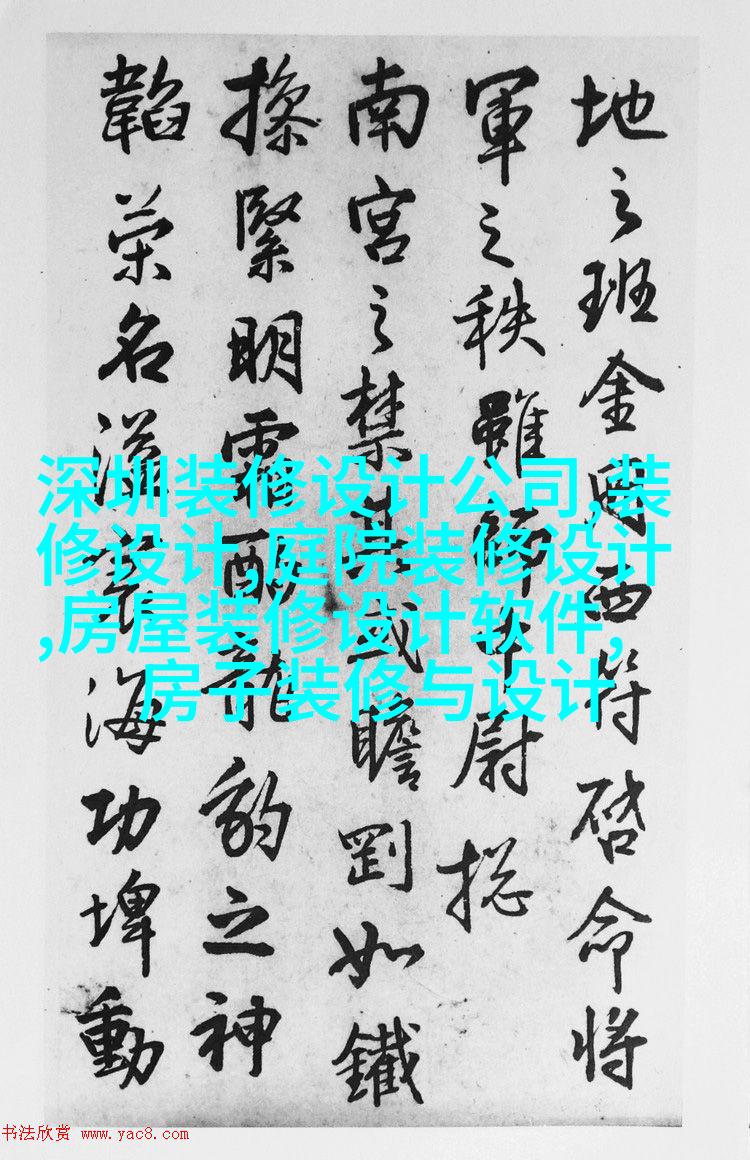 地之班金西符啓命將
軍之秩雖尉揔
南宮之禁或瞻罰如鐵
操緊明霜龍豹之神
韜榮名溢海功埤動
深圳装修设计公司,装
修设计,庭院装修设计
,房屋装修设计软件,
房子装修与设计
书法欣赏 www.yac8.com